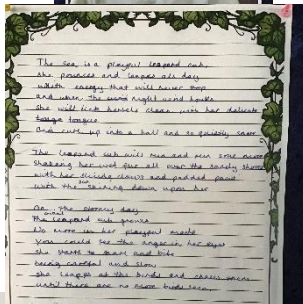 The sea is a playful leopard cub,
she pounces and leaps all day
with energy that will never stop
and when the night wind
she will lick herself clean with her delicate
tongue
and curl up into a ball and so quietly snore

The leopard cub will run and run some more
shaking her wet fur all over the sandy shore
with her claws and padded paws
with the sun shining down upon her

On the stormy day
the leopard cub
No more in her playful mood
You could see the anger in her eyes
she starts to and bite
being careful and slow
she leaps at the birds and
until there are no more birds